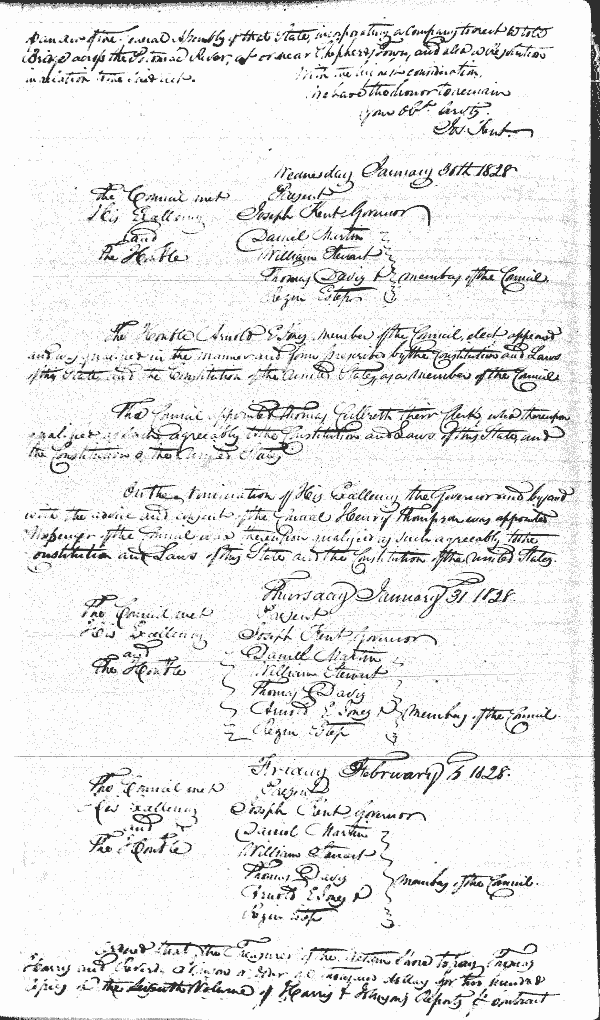 an Act of the General Assembly of that State, incorporating a Company to erect a Toll
Bridge across the Potomac River, at or near Shepherds Town, and also a resolution
in relation to the said Act.
With the highest consideration,
I have the honor to remain
your Obt. Servt.
Jos. Kent.
Wednesday January 30th 1828
The Council met Present
His Excellency Joseph Kent Governor
and Daniel Martin
The Honble William Stewart
Thomas Davis & members of the Council.
Rezin Estep
The Honble Arnold E Jones, member of the Council, elect appeared
and was qualified in the manner and form prescribed by the Constitution and Laws
of this State, and the Constitution of the United States, as a member of the Council
The Council appointed Thomas Culbreth their Clerk who thereupon
qualified as such agreeably to the Constitution and Laws of this State, and
the Constitution of the United States
On the nomination of His Excellency the Governor and by and
with the advice and consent of the Council Henry Thompson was appointed
Messenger of the Council who thereupon qualified as such agreeably to the
Constitution and Laws of this State and the Constitution of the United States.
Thursday January 31 1828.
The Council met Present
His Excellency Joseph Kent Governor
and Daniel Martin
The Honble William Stewart
Thomas Davis
Arnold E Jones & members of the Council
Rezin Estep
Friday February 1st 1828.
The Council met Present
His Excellency Joseph Kent Governor
and Daniel Martin
The Honble William Stewart
Thomas Davis members of the Council.
Arnold E Jones &
Rezin Estep
Ordered that the Treasurer of the Western Shore to pay Thomas
Harris and Reverdy Johnson or order a thousand dollars for two hundred
copies of the Seventh Volume of Harris & Johnsons Reports & contract